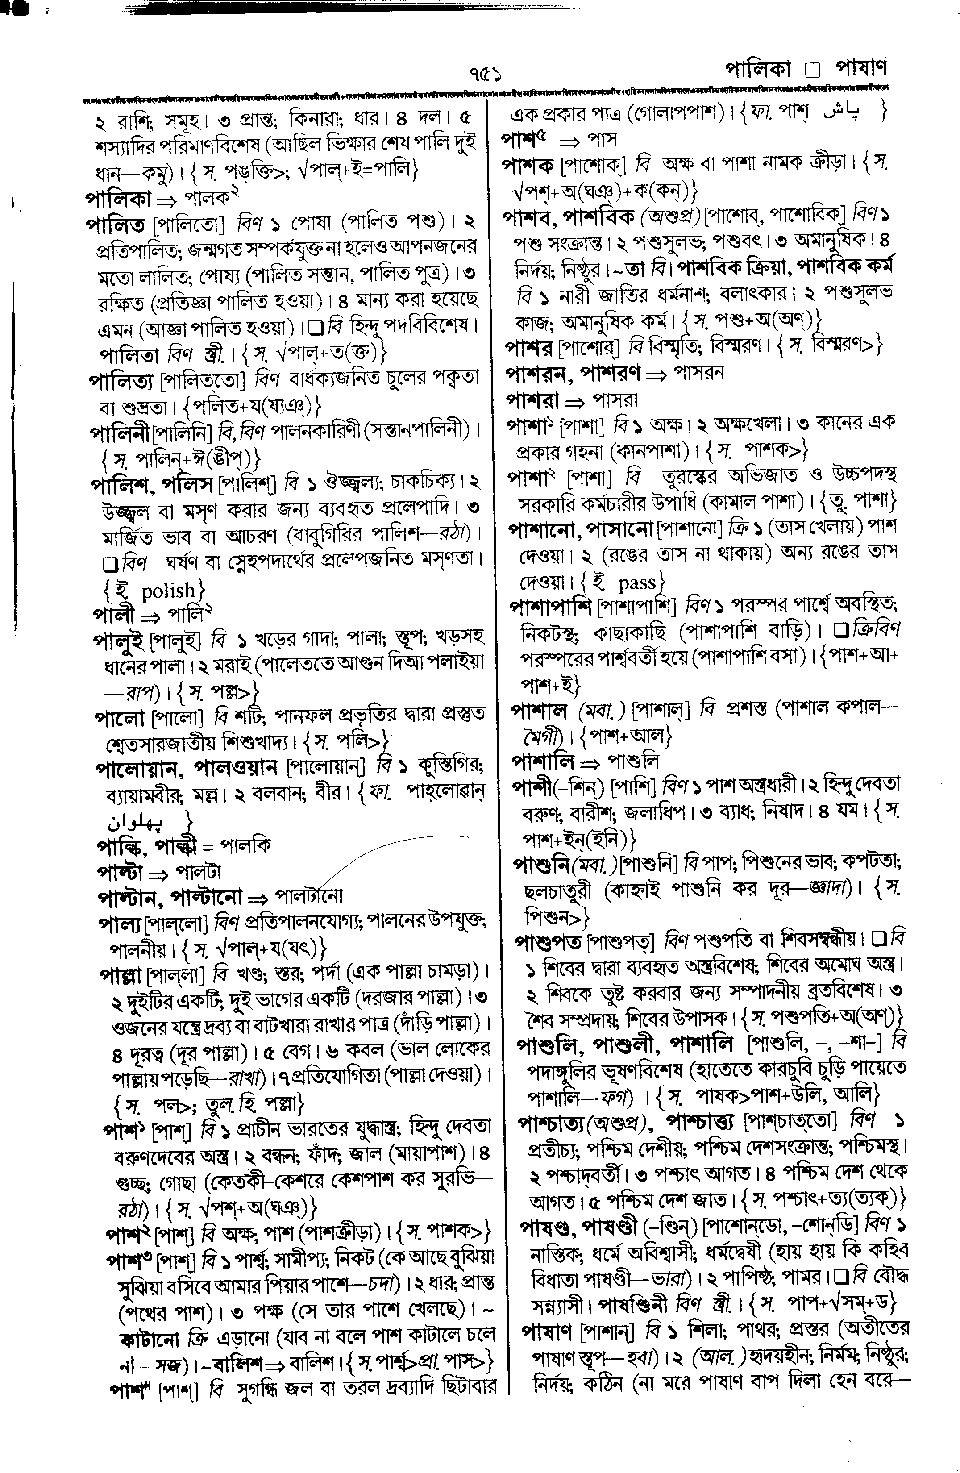 ৭৫১
পালিকা □ পাষাণ
২ রাশি; সমূহ। ৩ প্রান্ত; কিনারা; ধার। ৪ দল। ৫
শস্যাদির পরিমাণবিশেষ (আছিল ভিক্ষার শেষ পালি দুই
ধান—কমু)। { স. পঙক্তি>; √পাল্+ই=পালি}
পালিকা ⇒ পালক২
পালিত [পালিতো] বিণ ১ পোষা (পালিত পশু)। ২
প্রতিপালিত; জন্মগত সম্পর্কযুক্ত না হলেও আপনজনের
মতো লালিত; পোষ্য (পালিত সন্তান, পালিত পুত্র)। ৩
রক্ষিত (প্রতিজ্ঞা পালিত হওয়া)। ৪ মান্য করা হয়েছে
এমন (আজ্ঞা পালিত হওয়া)। □ বি হিন্দু পদবিবিশেষ।
পালিতা বিণ স্ত্রী.। { স. √পাল্+ত(ক্ত)}
পালিত্য [পালিত্‌তো] বিণ বার্ধক্যজনিত চুলের পক্বতা
বা শুভ্রতা। {পলিত+য(ষ্যঞ)}
পালিনী [পালিনি] বি, বিণ পালনকারিণী (সন্তানপালিনী)।
{ স. পালিন্+ঈ(ঙীপ্)}
পালিশ, পলিস [পালিশ্] বি ১ ঔজ্জ্বল্য; চাকচিক্য। ২
উজ্জ্বল বা মসৃণ করার জন্য ব্যবহৃত প্রলেপাদি। ৩
মার্জিত ভাব বা আচরণ (বাবুগিরির পালিশ—রঠা)।
□ বিণ ঘর্ষণ বা স্নেহপদার্থের প্রলেপজনিত মসৃণতা।
{ ই polish}
পালী ⇒ পালি২
পালুই [পালুই] বি ১ খড়ের গাদা; পালা; স্তূপ; খড়সহ
ধানের পালা। ২ মরাই (পালেতে আগুন দিআ পলাইয়া
—রাপ)। { স. পল্ল>}
পালো [পালো] বি শটি; পানফল প্রভৃতির দ্বারা প্রস্তুত
শ্বেতসারজাতীয় শিশুখাদ্য। { স. পলি>}
পালোয়ান, পালওয়ান [পালোয়ান্] বি ১ কুস্তিগির;
ব্যায়ামবীর; মল্ল। ২ বলবান; বীর। { ফা. পাহ্‌লোৱান্
پهلوان }
পাল্কি, পাল্কী = পালকি
পাল্টা ⇒ পালটা
পাল্টান, পাল্টানো ⇒ পালটানো
পাল্য [পাল্‌লো] বিণ প্রতিপালনযোগ্য; পালনের উপযুক্ত;
পালনীয়। { স. √পাল্+য(যৎ)}
পাল্লা [পাল্‌লা] বি খণ্ড; স্তর; পর্দা (এক পাল্লা চামড়া)।
২ দুইটির একটি; দুই ভাগের একটি (দরজার পাল্লা)। ৩
ওজনের যন্ত্রে দ্রব্য বা বাটখারা রাখার পাত্র (দাঁড়ি পাল্লা)।
৪ দূরত্ব (দূর পাল্লা)। ৫ বেগ। ৬ কবল (ভাল লোকের
পাল্লায় পড়েছি—রাখা)। ৭ প্রতিযোগিতা (পাল্লা দেওয়া)।
{ স. পল>; তুল. হি. পল্লা}
পাশ১ [পাশ্] বি ১ প্রাচীন ভারতের যুদ্ধাস্ত্র; হিন্দু দেবতা
বরুণদেবের অস্ত্র। ২ বন্ধন; ফাঁদ; জাল (মায়াপাশ)। ৪
গুচ্ছ; গোছা (কেতকী-কেশরে কেশপাশ কর সুরভি—
রঠা)। { স. √পশ্+অ(ঘঞ)}
পাশ২ [পাশ্] বি অক্ষ; পাশ (পাশক্রীড়া)। { স. পাশক>}
পাশ৩ [পাশ্] বি ১ পার্শ্ব; সামীপ্য; নিকট (কে আছে বুঝিয়া
সুঝিয়া বসিবে আমার পিয়ার পাশে—চদা)। ২ ধার; প্রান্ত
(পথের পাশ)। ৩ পক্ষ (সে তার পাশে খেলছে)। ~
কাটানো ক্রি এড়ানো (যাব না বলে পাশ কাটালে চলে
না - সজ)। ~বালিশ ⇒ বালিশ। { স. পার্শ্ব> প্রা. পাস>}
পাশ৪ [পাশ্] বি সুগন্ধি জল বা তরল দ্রব্যাদি ছিটাবার
এক প্রকার পাত্র (গোলাপপাশ)। { ফা. পাশ্ پاش }
পাশ৫ ⇒ পাস
পাশক [পাশোক্] বি অক্ষ বা পাশা নামক ক্রীড়া। { স.
√পশ্+অ(ঘঞ)+ক(কন)}
পাশব, পাশবিক (অশুপ্র) [পাশোব্, পাশোবিক্] বিণ ১
পশু সংক্রান্ত। ২ পশুসুলভ; পশুবৎ। ৩ অমানুষিক। ৪
নির্দয়; নিষ্ঠুর। ~তা বি। পাশবিক ক্রিয়া, পাশবিক কর্ম
বি ১ নারী জাতির ধর্মনাশ; বলাৎকার। ২ পশুসুলভ
কাজ; অমানুষিক কর্ম। { স. পশু+অ(অণ্)}
পাশর [পাশোর্] বি বিস্মৃতি; বিস্মরণ। { স. বিস্মরণ>}
পাশরন, পাশরণ ⇒ পাসরন
পাশরা ⇒ পাসরা
পাশা১ [পাশা] বি ১ অক্ষ। ২ অক্ষখেলা। ৩ কানের এক
প্রকার গহনা (কানপাশা)। { স. পাশক>}
পাশা২ [পাশা] বি তুরস্কের অভিজাত ও উচ্চপদস্থ
সরকারি কর্মচারীর উপাধি (কামাল পাশা)। { তু. পাশা}
পাশানো, পাসানো [পাশানো] ক্রি ১ (তাস খেলায়) পাশ
দেওয়া। ২ (রঙের তাস না থাকায়) অন্য রঙের তাস
দেওয়া। { ই pass}
পাশাপাশি [পাশাপাশি] বিণ ১ পরস্পর পার্শ্বে অবস্থিত;
নিকটস্থ; কাছাকাছি (পাশাপাশি বাড়ি)। □ ক্রিবিণ
পরস্পরের পার্শ্ববর্তী হয়ে (পাশাপাশি বসা)। {পাশ+আ+
পাশ+ই}
পাশাল (মবা.) [পাশাল্] বি প্রশস্ত (পাশাল কপাল—
মৈগী)। {পাশ+আল}
পাশালি ⇒ পাশুলি
পাশী (–শিন্) [পাশি] বিণ ১ পাশ অস্ত্রধারী। ২ হিন্দু দেবতা
বরুণ; বারীশ; জলাধিপ। ৩ ব্যাধ; নিষাদ। ৪ যম। { স.
পাশ+ইন্(ইনি)}
পাশুনি (মবা.) [পাশুনি] বি পাপ; পিশুনের ভাব; কপটতা;
ছলচাতুরী (কাহ্নাই পাশুনি কর দূর—জ্ঞাদা)। { স.
পিশুন>}
পাশুপত [পাশুপত্] বিণ পশুপতি বা শিবসম্বন্ধীয়। □ বি
১ শিবের দ্বারা ব্যবহৃত অস্ত্রবিশেষ; শিবের অমোঘ অস্ত্র।
২ শিবকে তুষ্ট করবার জন্য সম্পাদনীয় ব্রতবিশেষ। ৩
শৈব সম্প্রদায়; শিবের উপাসক। { স. পশুপতি+অ(অণ্)}
পাশুলি, পাশুলী, পাশালি [পাশুলি, –, –শা–] বি
পদাঙ্গুলির ভূষণবিশেষ (হাতেতে কারচুবি চুড়ি পায়েতে
পাশালি—ফগ)। { স. পাষক>পাশ+উলি, আলি}
পাশ্চাত্য (অশুপ্র), পাশ্চাত্ত্য [পাশ্‌চাত্‌তো] বিণ ১
প্রতীচ্য; পশ্চিম দেশীয়; পশ্চিম দেশসংক্রান্ত; পশ্চিমস্থ।
২ পশ্চাদ্বর্তী। ৩ পশ্চাৎ আগত। ৪ পশ্চিম দেশ থেকে
আগত। ৫ পশ্চিম দেশ জাত। { স. পশ্চাৎ+ত্য(ত্যক্)}
পাষণ্ড, পাষণ্ডী (–ণ্ডিন্) [পাশোন্‌ডো, –শোন্‌ডি] বিণ ১
নাস্তিক; ধর্মে অবিশ্বাসী; ধর্মদ্বেষী (হায় হায় কি কহিব
বিধাতা পাষণ্ডী—ভারা)। ২ পাপিষ্ঠ; পামর। □ বি বৌদ্ধ
সন্ন্যাসী। পাষণ্ডিনী বিণ স্ত্রী.। { স. পাপ+√সম্+ড}
পাষাণ [পাশান্] বি ১ শিলা; পাথর; প্রস্তর (অতীতের
পাষাণ স্তূপ—হবা)। ২ (আল.) হৃদয়হীন; নির্মম; নিষ্ঠুর;
নির্দয়; কঠিন (না মরে পাষাণ বাপ দিলা হেন বরে—